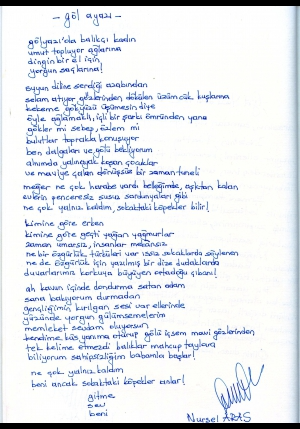 - göl ayazı -
gölyazı'da balıkçı kadın
umut topluyor ağlarına
dingin bir el için,
yorgun saçlarına!
suyun diline serdiği azabından
selam atıyor gözlerinden dökülen üzüm çük kuşlarına
kekeme gökyüzü üşümesin diye
öyle ağlamaklı, içli bir şarkı ömründen yana
gökler mi sebep, özlem mi
bulutlar toprakla konuşuyor
ben dalgaları ve gölü bekliyorum
alnımda yalınayak koşan çocuklar
ve maviye çalan dönüşsüz bir zaman treni
meğer ne çok harabe vardı belleğimde, aşktan kalan
evlerin penceresiz susuz sardunyaları gibi
ne çok yalnız kaldım, sokaktaki köpekler bilir!
kimine göre erken
kimine göre geçti yağan yağmurlar
zaman umarsız, insanlar mekansız
ne bir özgürlük türküleri var ıssız sokaklarda söylenen
ne de özgürlük için yazılmış bir dize dudaklarda
duvarlarıma korkuyla büyüyen ortadoğu çıbanı!
ah kavun içinde dondurma satan adam
sana bakıyorum durmadan
gençliğimin kırılgan sesi var ellerinde
yüzünde yorgun gülümsemelerim
memleket sevdam oluyorsun
kendime küs yanıma oturup gölü içsem mavi gözlerinden
tek kelime etmezdi balıklar mahcup taylara
biliyorum sahipsizliğim babamla başlar!
ne çok yalnız kaldım
beni ancak sokaktaki köpekler anlar!
gitme
sev
beni
Nursel